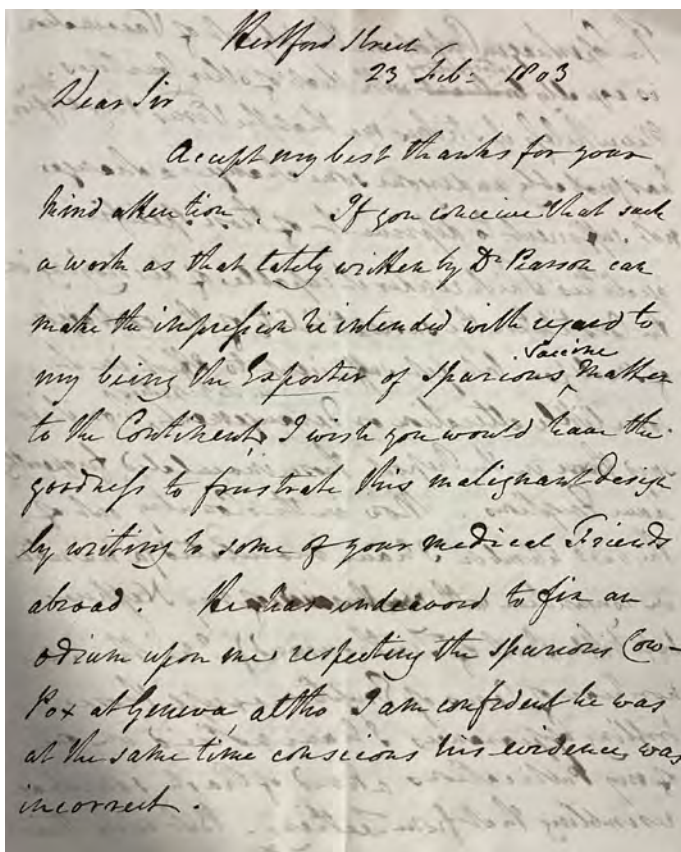 Hertford Street
23 Feb: 1803
Dear Sir
Accept my best thanks for your
kind attention. If you conceive that such
a work as that lately written by Dr Pearson can
make the impression he intended with regard to
my being the Exporter of spurious Vaccine Matter
to the Continent, I wish you would have the
goodness to frustrate this malignant design
by writing to some of your medical Friends
abroad. He has endeavord to fix an
odium upon me respecting the spurious Cow-
Pox at Geneva, altho I am confident he was
at the same time conscious his evidence was
incorrect.